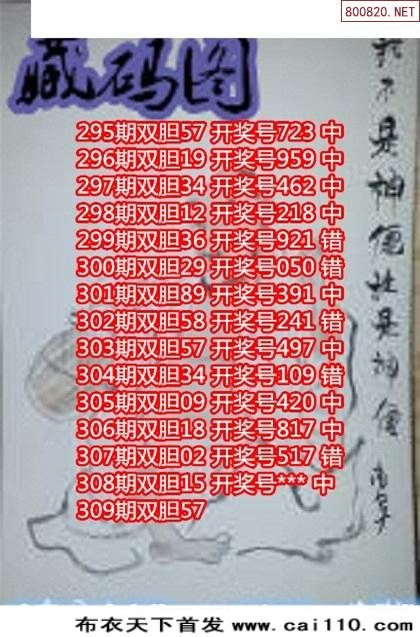 800820.NET
藏码图
295期双胆57 开奖号723 中
296期双胆19 开奖号959 中
297期双胆34 开奖号462 中
298期双胆12 开奖号218 中
299期双胆36 开奖号921 错
300期双胆29 开奖号050 错
301期双胆89 开奖号391 中
302期双胆58 开奖号241 错
303期双胆57 开奖号497 中
304期双胆34 开奖号109 错
305期双胆09 开奖号420 中
306期双胆18 开奖号817 中
307期双胆02 开奖号517 错
308期双胆15 开奖号*** 中
309期双胆57
不是神仙
是神仙
布衣天下首发 www.cai110.com